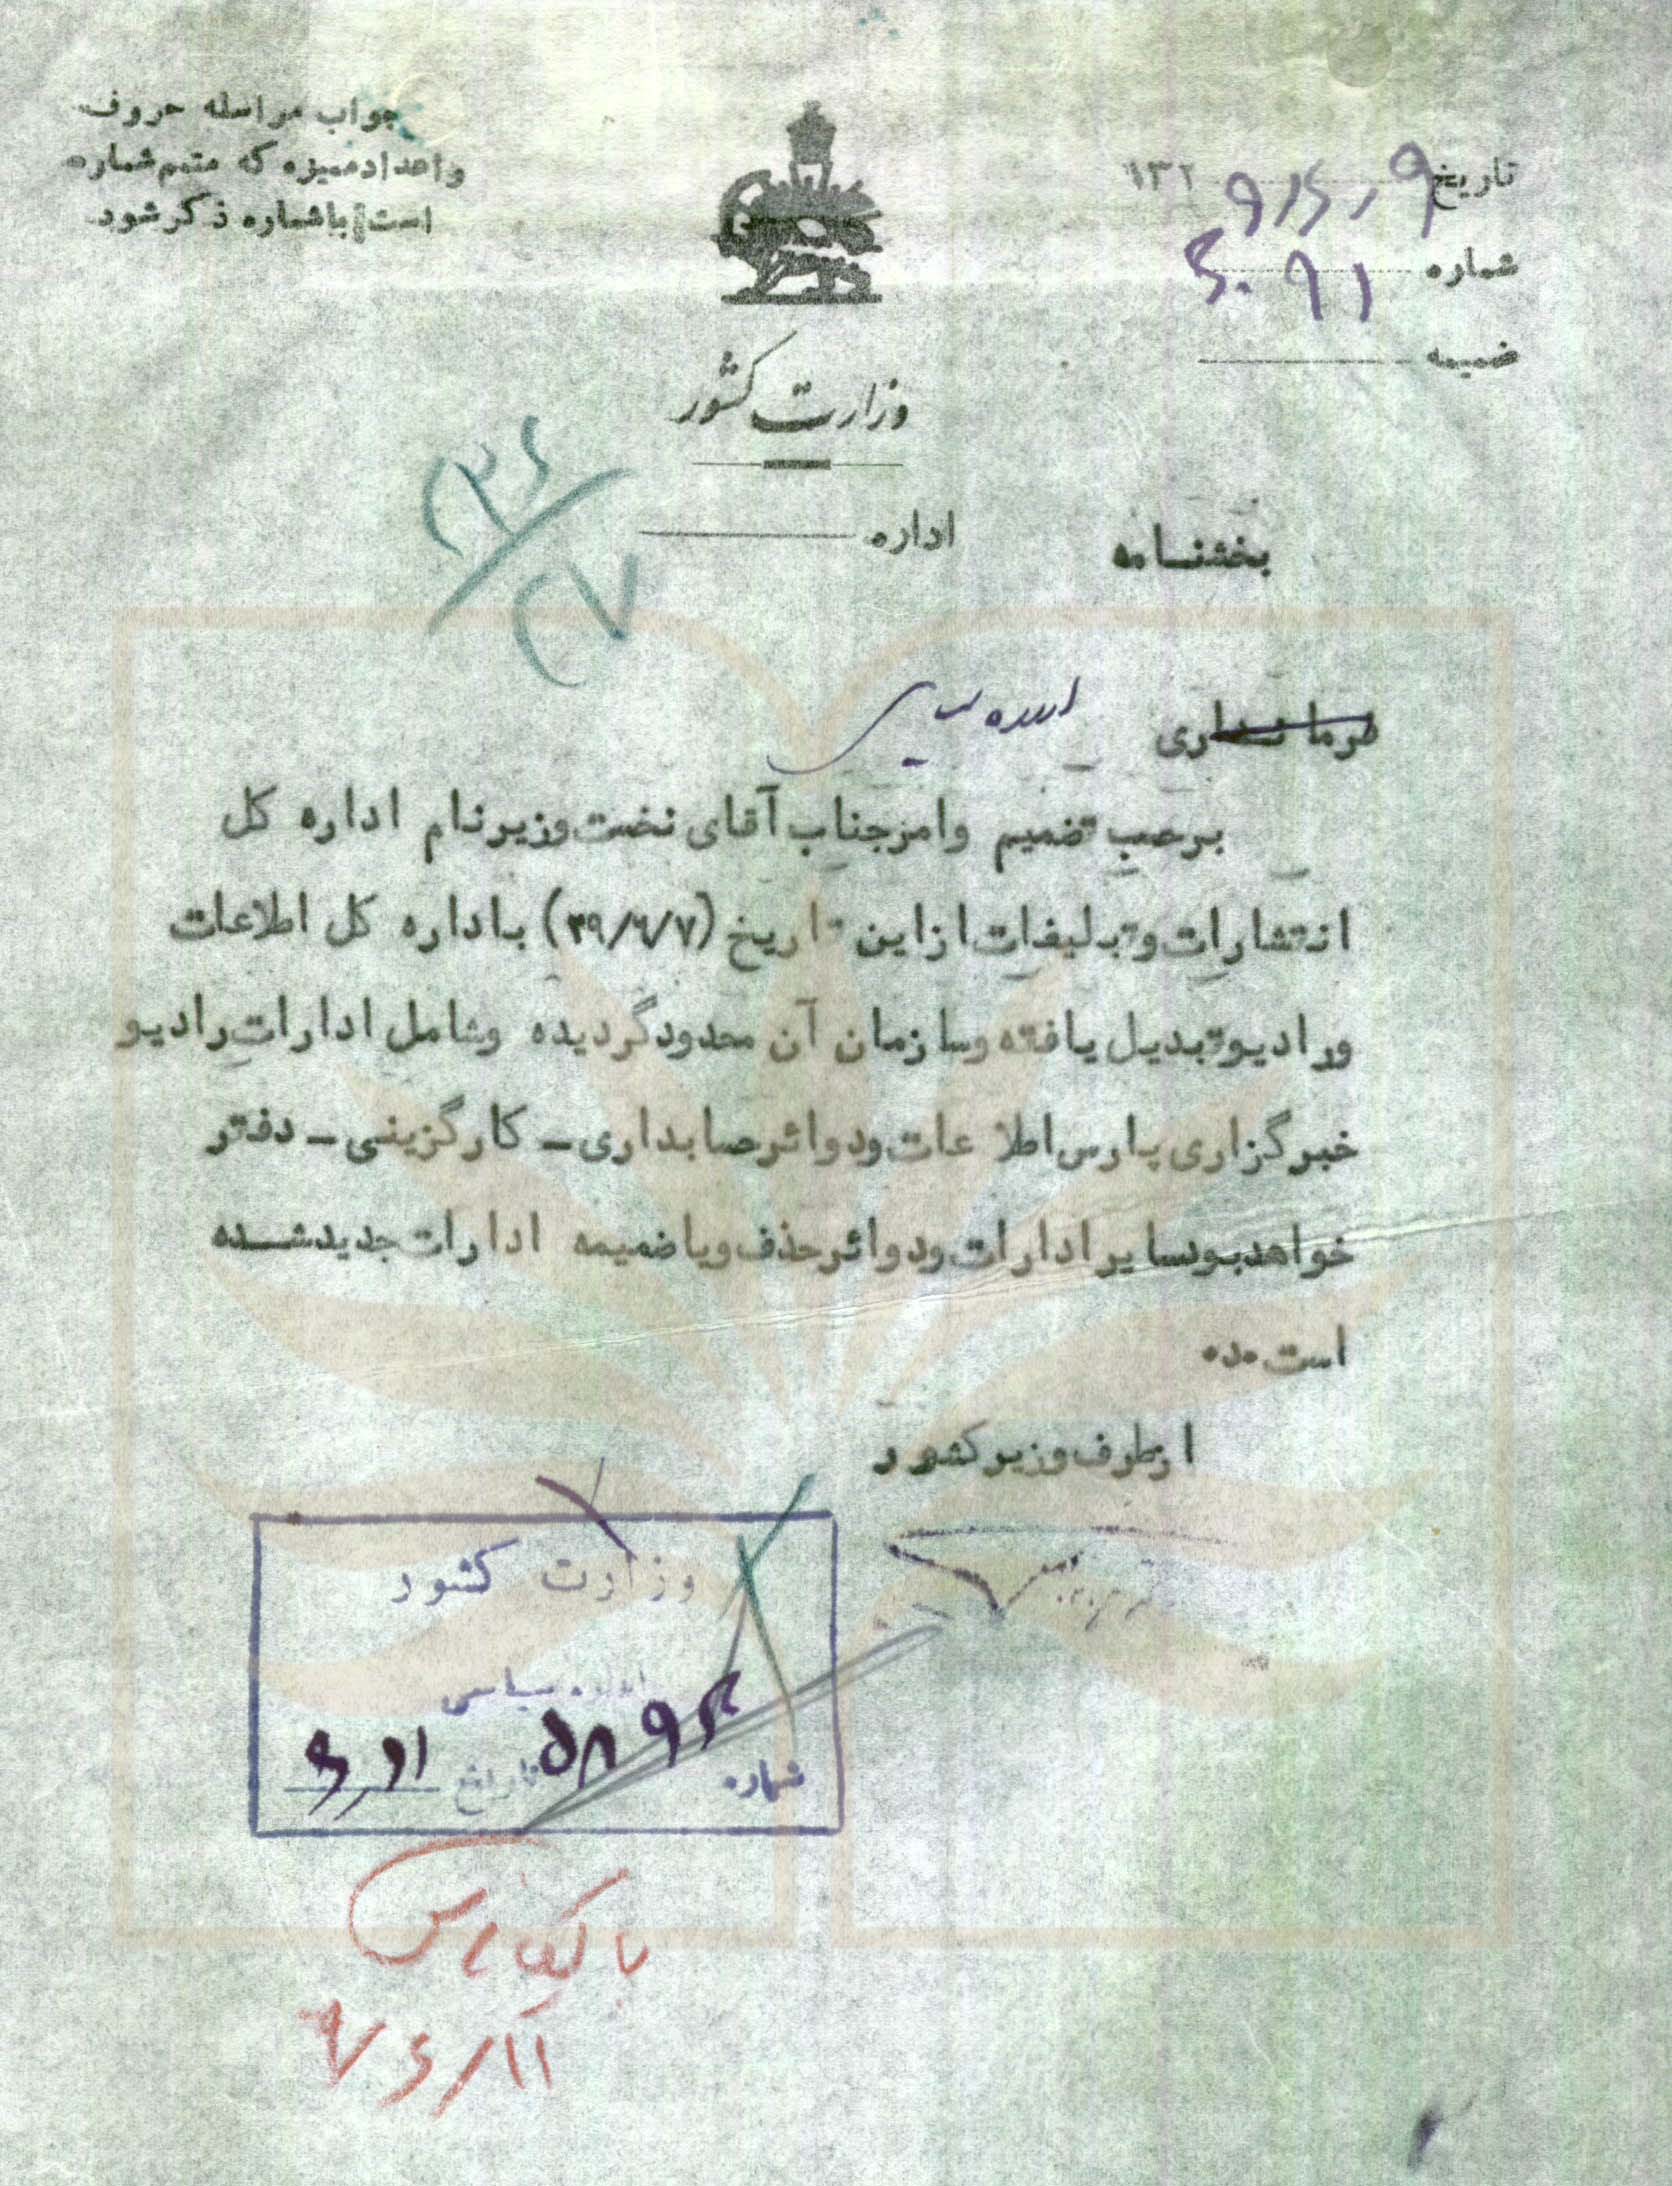 جواب مراسله حروف
واعداد ممیزه که متمم شماره
است باشماره ذکر شود.
تاریخ ۹ ر ۶ ر ۱۳۲۹
شماره ۶۰۹۱
ضمیمه
وزارت کشور
اداره
بخشنامه
فرمانداری اداره سیاسی
برحسب تصمیم وامر جناب آقای نخست وزیر نام اداره کل
انتشارات وتبلیغات از این تاریخ (۲۹/۶/۷) باداره کل اطلاعات
ورادیو تبدیل یافته وسازمان آن محدود گردیده وشامل ادارات رادیو
خبرگزاری پارس اطلاعات ودوائر حسابداری - کارگزینی - دفتر
خواهد بود سایر ادارات ودوائر حذف ویا ضمیمه ادارات جدید شده
است .د.
از طرف وزیر کشور
وزارت کشور
اداره سیاسی
شماره تاریخ
۱۱/۶